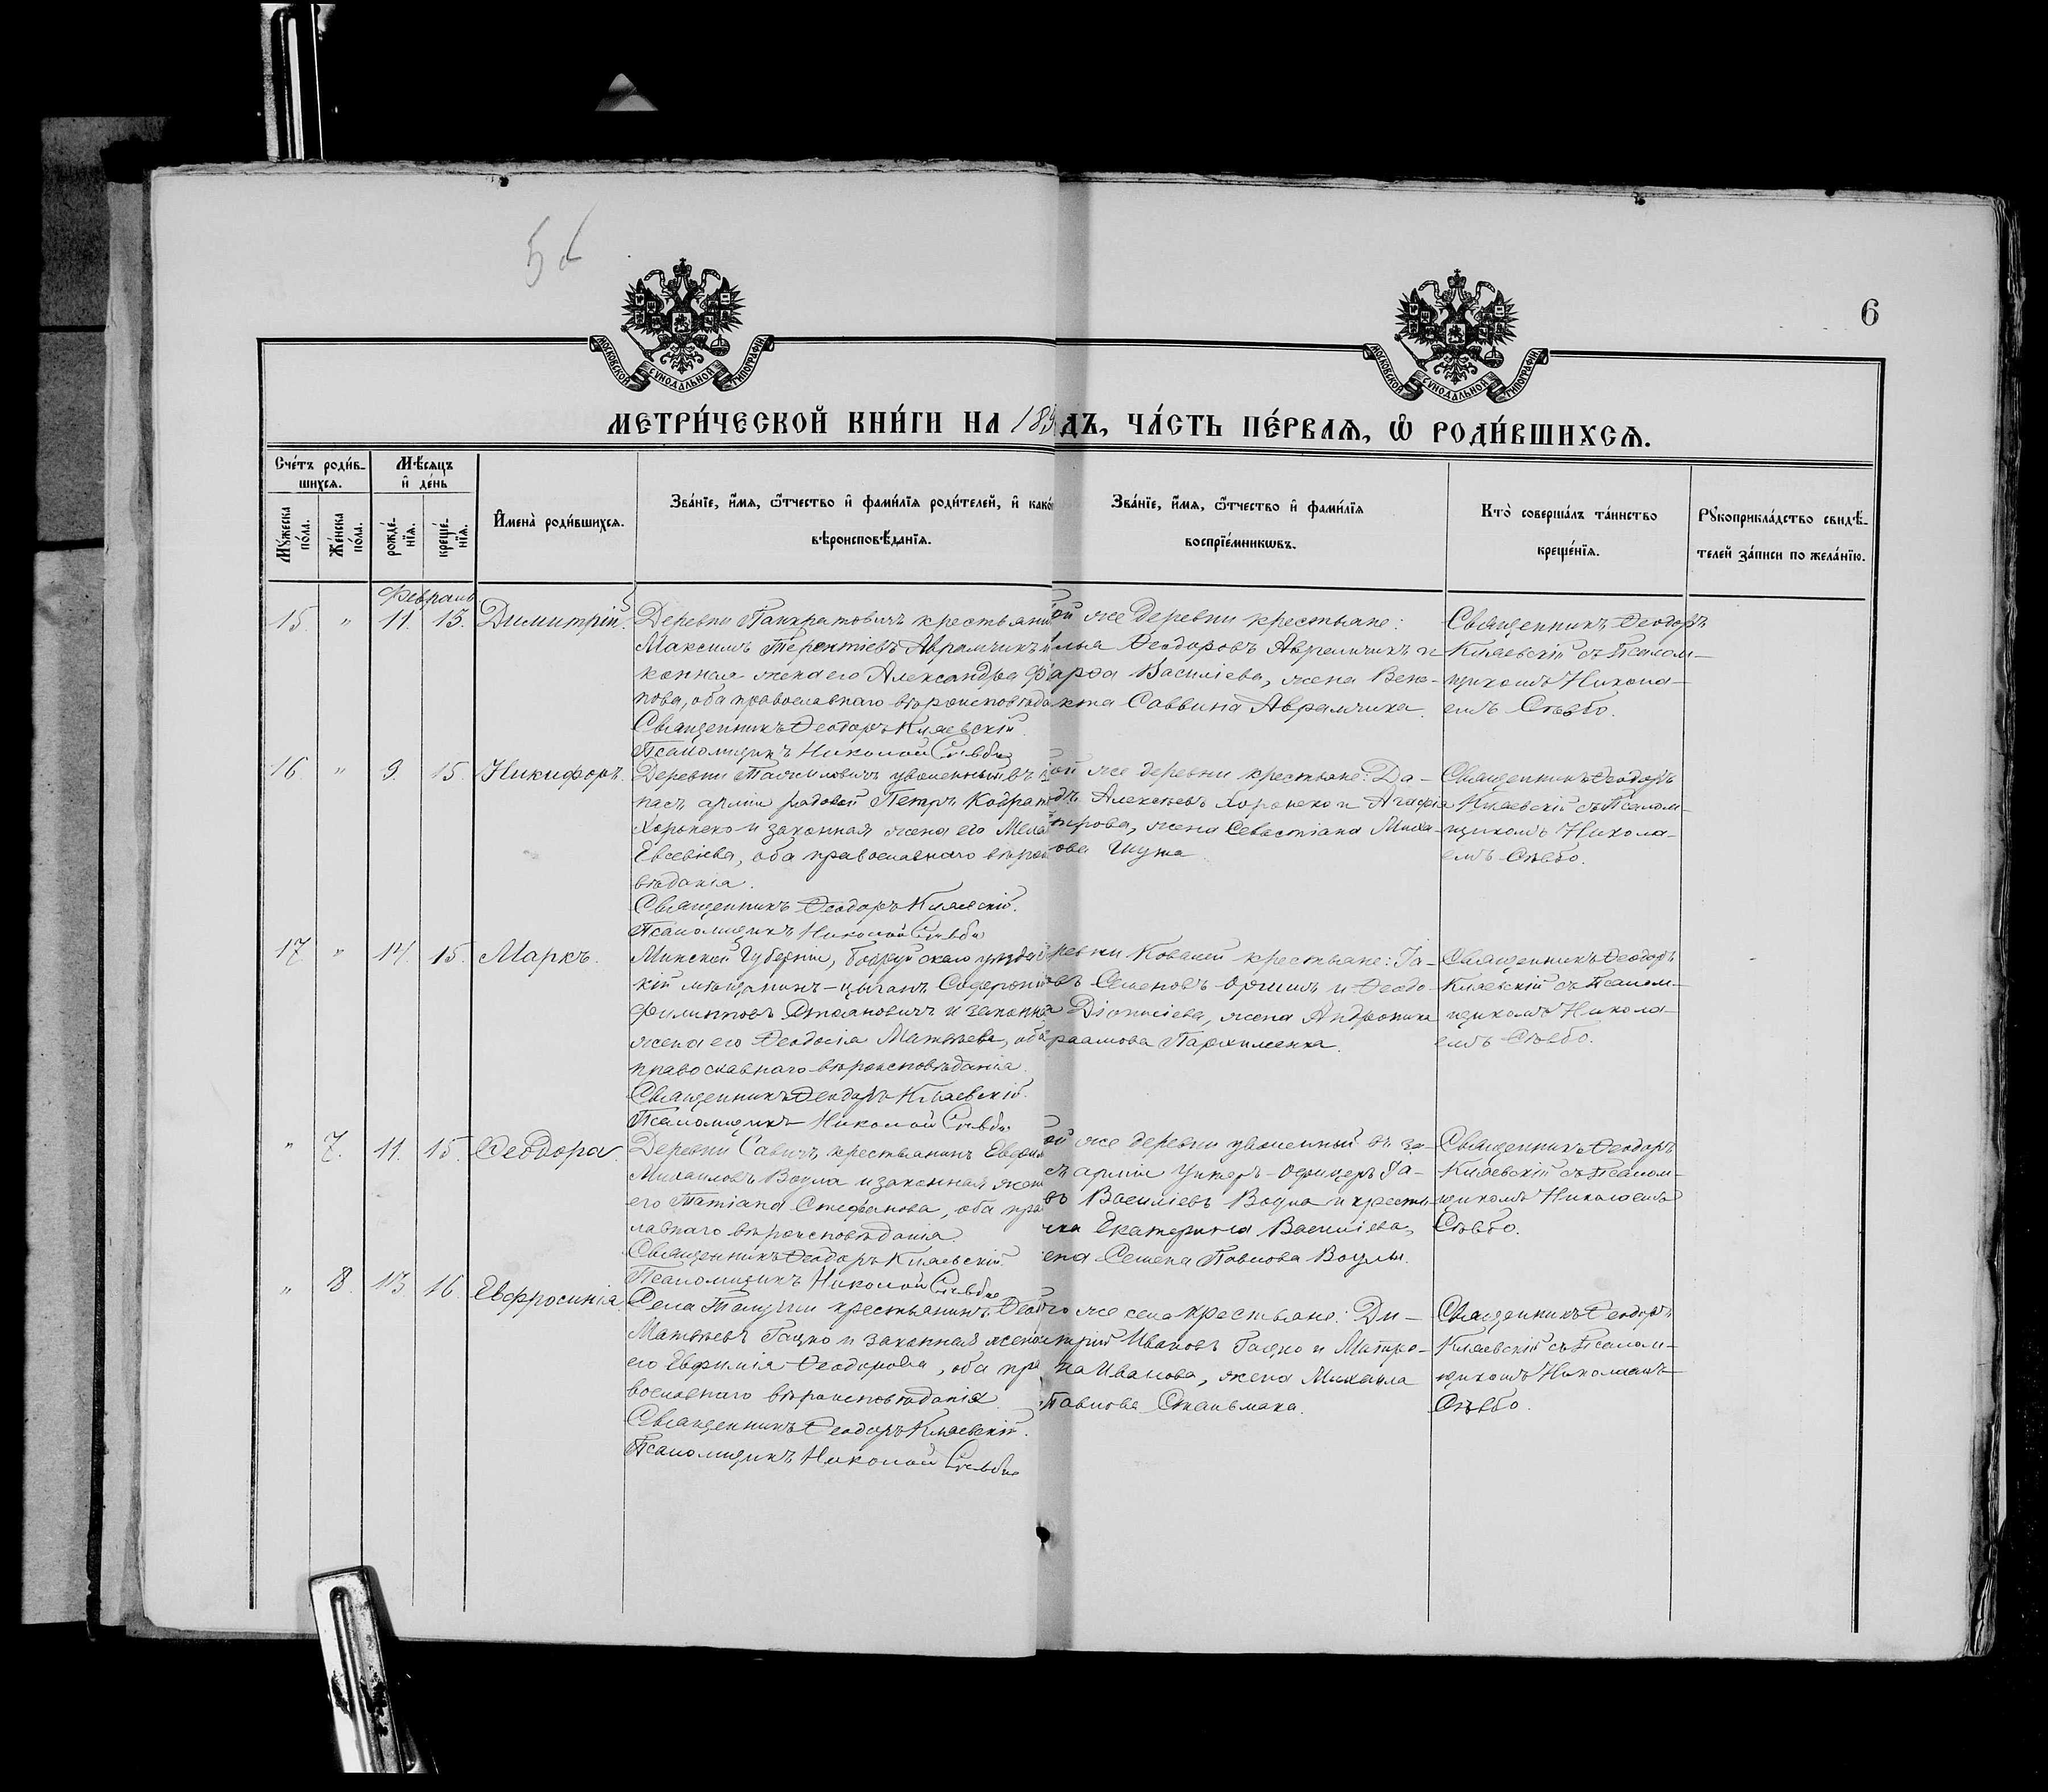 5б
6
МОСКОВСКОЙ СУНОДАЛЬНОЙ ТИПОГРАФІИ
МОСКОВСКОЙ СУНОДАЛЬНОЙ ТИПОГРАФІИ
МЕТРИ́ЧЕСКОЙ КНИ́ГИ НА 189
ДЪ, ЧА́СТЬ ПЕ́РВАЯ, Ѽ РОДИ́ВШИХСЯ.
Сче́тъ роди́в-
шихся.
Му́жеска по́ла.
Же́нска по́ла.
Мѣ́сяцъ
и҆ де́нь
рожде́-
нїя.
креще́-
нїя.
И҆мена̀ роди́вшихся.
Зва́нїе, и҆́мя, ѻ҆́тчество и҆ фами́лїя роди́телей, и҆ како́
вѣроисповѣ́данїя.
Зва́нїе, и҆́мя, ѻ҆́тчество и҆ фами́лїя
воспрїе́мникѡвъ.
Кто̀ соверша́лъ та́инство
креще́нїя.
Рꙋкоприкла́дство свидѣ́-
телей за́писи по жела́нїю.
Февраль
15. " 11. 13. Димитрій.
Деревни Панкратовичъ крестьяни
Максимъ Терентіевъ Аврамчикъ и
конная жена его Александра Ф
пова, оба православнаго вѣроисповѣда
Священникъ Ѳеодоръ Кляевскій.
Псаломщикъ Николай Съвбо
ой же деревни крестьяне:
лья Ѳеодоровъ Аврамчикъ и
арѳа Василіева, жена Вене-
кта Саввина Аврамчика.
Священникъ Ѳеодоръ
Кляевскій съ Псалом-
щикомъ Никола-
емъ Съвбо.
16 " 9. 15. Никифоръ.
Деревни уволенный въ
пасъ арміи рядовой Петръ Кодрат
Хоронеко и законная жена его Мела
Евсевіева, оба православнаго вѣрои
вѣданія.
Священникъ Ѳеодоръ Кляевскій.
Псаломщикъ Николай Съвбо
ой же деревни крестьяне: Да-
дъ Алексѣевъ Хоронеко и Агафія
трова, жена Севастіана Миха-
ова Шужа
Священникъ Ѳеодоръ
Кляевскій съ Псалом-
щикомъ Никола-
емъ Съвбо.
17 " 14. 15. Маркъ.
Минской Губерніи, Бобруйскаго уѣзда
кій мѣщанинъ-цыганъ
Филипповъ Стеановичъ и законна
жена его Ѳеодосія Матѳеева, оба
православнаго вѣроисповѣданія.
Священникъ Ѳеодоръ Кляевскій.
Псаломщикъ Николай Съвбо
ревни Ковалей крестьяне: Іа-
овъ Семеновъ и Ѳеодо-
а Діонисіева, жена Андроника
раамова Пархименка.
Священникъ Ѳеодоръ
Кляевскій съ Псалом-
щикомъ Никола-
емъ Съвбо.
" 7. 11. 15. Ѳеодора.
Деревни Савичъ крестьянинъ Евфим
Михаиловъ Воула и законная жена
его Татіана Стефанова, оба пра
лавнаго вѣроисповѣданія.
Священникъ Ѳеодоръ Кляевскій.
Псаломщикъ Николай Съвбо
ой же деревни уволенный въ за-
съ арміи Унтеръ-Офицеръ Іа-
въ Василіевъ Воула и кресть-
нка Екатерина Василіева,
ена Семена Павлова Воулы.
Священникъ Ѳеодоръ
Кляевскій съ Псалом-
щикомъ Николаемъ
Съвбо.
" 8. 13 16. Евфросинія.
Села крестьянинъ Ѳеод
Матѳеевъ Гацко и законная жена
его Евфимія Ѳеодорова, оба пра
вославнаго вѣроисповѣданія.
Священникъ Ѳеодоръ Кляевскій.
Псаломщикъ Николай Съвбо
го же села крестьяне: Ди-
митрій Ивановъ Гацко и Матро-
на Иванова, жена Михаила
Павлова Стальмака.
Священникъ Ѳеодоръ
Кляевскій съ Псалом-
щикомъ Николаемъ
Съвбо.